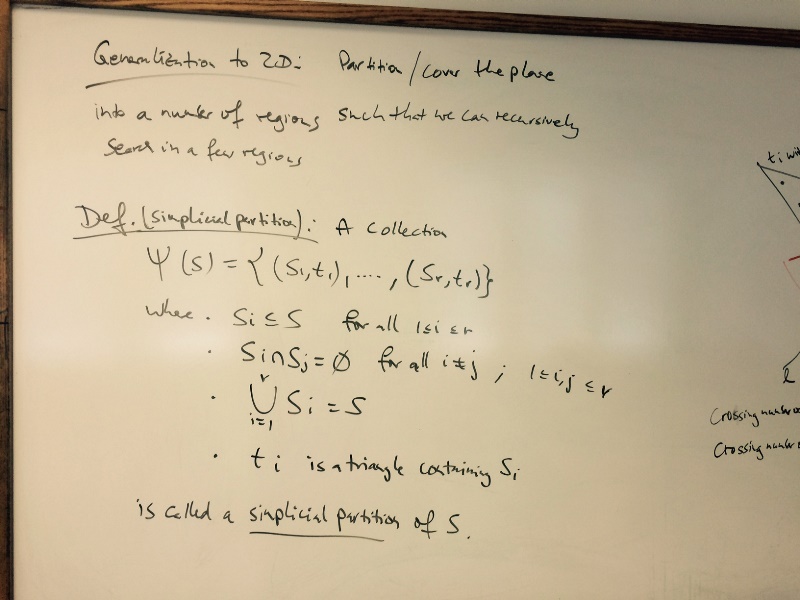 Generalization to 2D: Partition / cover the plane
into a number of regions such that we can recursively
Search in a few regions
Def. (simplicial partition): A collection
Ψ(S) = {(S₁,t₁), ...., (Sᵣ,tᵣ)}
where • Sᵢ ⊆ S for all 1≤i≤r
• Sᵢ∩Sⱼ = ∅ for all i≠j ; 1≤i,j≤r
• ⋃ᵢ₌₁ʳ Sᵢ = S
• tᵢ is a triangle containing Sᵢ
is called a simplicial partition of S.
tᵢ
l
Crossing number
Crossing number